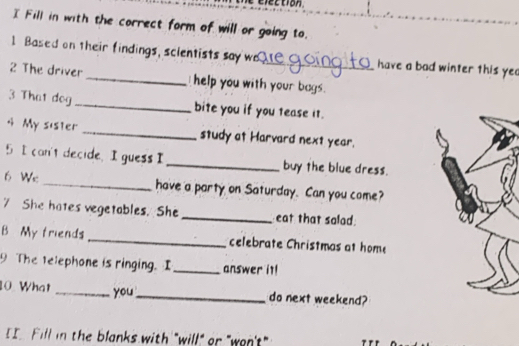 ELECTION.
I Fill in with the correct form of will or going to.
1 Based on their findings, scientists say we are going to have a bad winter this yea
2 The driver ____________ help you with your bags.
3 That dog ____________ bite you if you tease it.
4 My sister ____________ study at Harvard next year.
5 I can't decide. I guess I ____________ buy the blue dress.
6 We ____________ have a party on Saturday. Can you come?
7 She hates vegetables. She ____________ eat that salad.
8 My friends ____________ celebrate Christmas at home
9 The telephone is ringing. I ______ answer it!
10. What ______ you ____________ do next weekend?
II. Fill in the blanks with "will" or "won't"
III.